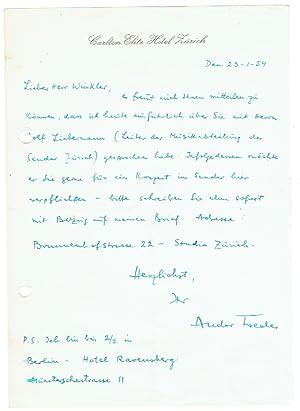 Carlton Elite Hotel Zürich
Den 23-1-54
Lieber Herr Winkler,
es freut mich Ihnen mitteilen zu
können, dass ich heute ausführlich über Sie mit Herrn
Rolf Liebermann (Leiter der Musikabteilung des
Sender Zürich) gesprochen habe. Infolgedessen möchte
er Sie gerne für ein Konzert im Sender hier
verpflichten - bitte schreiben Sie ihm sofort
mit Bezug auf meinen Brief. Adresse:
Brunnenhofstrasse 22 - Studio Zürich.
Herzlichst,
Ihr
Andor Foldes
P.S. Ich bin bis 2/2 in
Berlin - Hotel Ravensberg
Münsterschestrasse 11